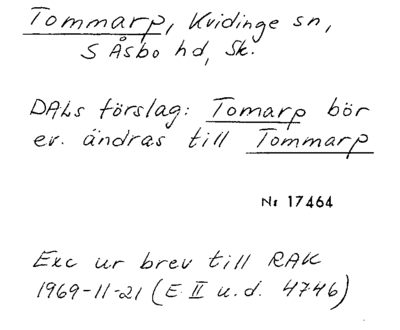 Tommarp, Kvidinge sn,
S Åsbo hd, Sk.
DALs förslag: Tomarp bör
ev. ändras till Tommarp
Nr 17464
Exc ur brev till RAK
1969-11-21 (E II u.d. 4746)